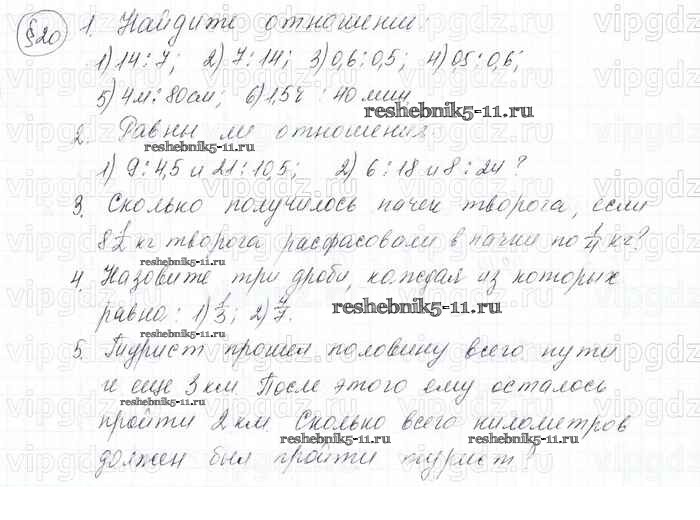 §20 1. Найдите отношения:
1) 14:7; 2) 7:14; 3) 0,6:0,5; 4) 0,5:0,6;
5) 4м:80см; 6) 1,5ч : 40 мин.
reshebnik5-11.ru
2. Равны ли отношения:
reshebnik5-11.ru
1) 9:4,5 и 21:10,5; 2) 6:18 и 8:24?
3. Сколько получилось пачек творога, если
8 1/2 кг творога расфасовали в пачки по 1/4 кг?
4. Назовите три дроби, каждая из которых
равна: 1) 1/3; 2) 4/7.
reshebnik5-11.ru
reshebnik5-11.ru
5. Турист прошел половину всего пути
и еще 3 км. После этого ему осталось
reshebnik5-11.ru
пройти 2 км. Сколько всего километров
reshebnik5-11.ru reshebnik5-11.ru
должен был пройти турист?